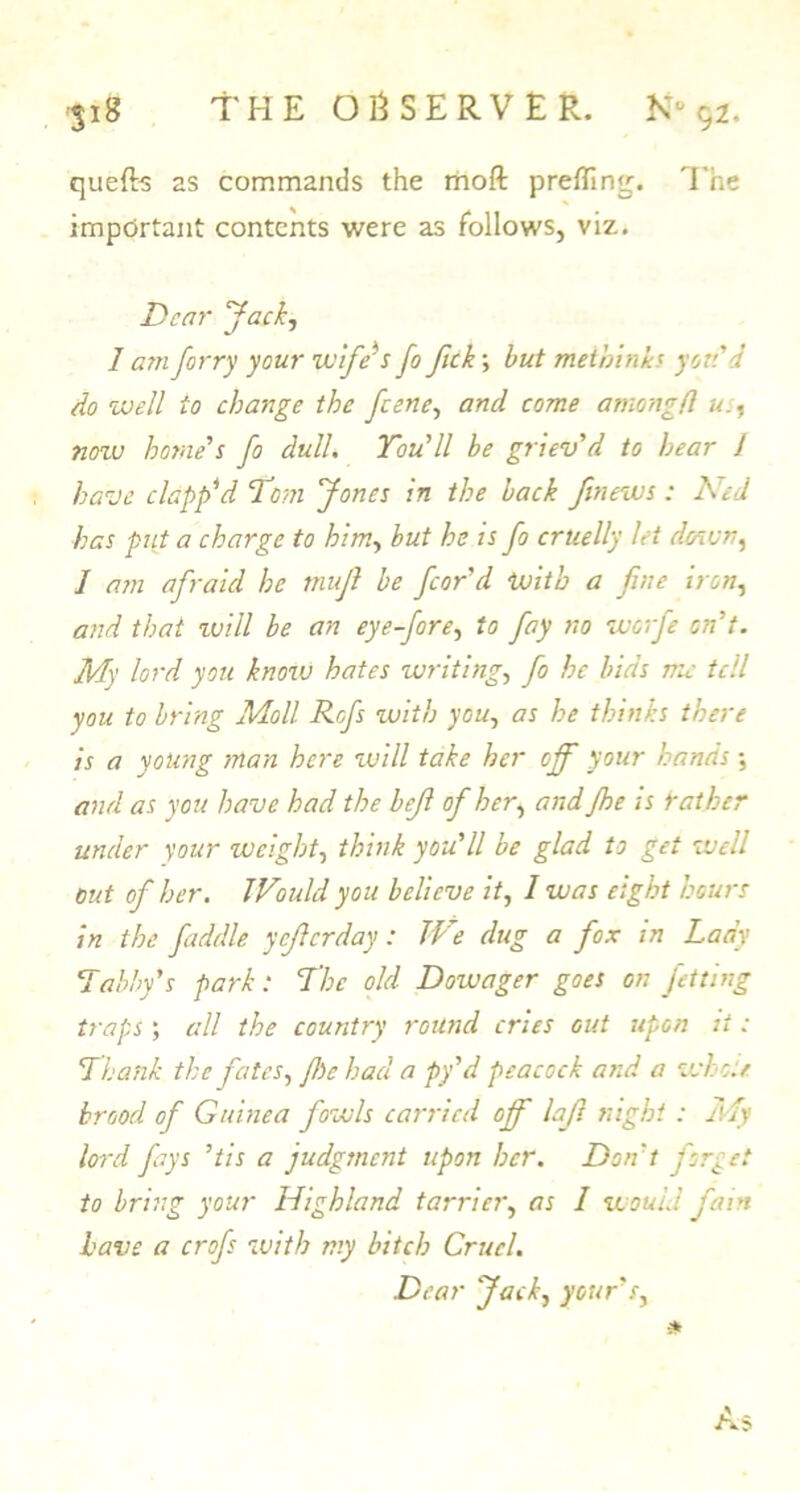 318 THE OBSERVER. N° 92.
queſts as commands the moſt preſſing. The
important contents were as follows, viz.
Dear Jack,
I am ſorry your wife's ſo ſick; but methinks you'd
do well to change the ſcene, and come amongſt us,
now home's ſo dull. You'll be griev'd to hear I
have clapp'd Tom Jones in the back ſinews: Ned
has put a charge to him, but he is ſo cruelly let down,
I am afraid he muſt be ſcor'd with a fine iron,
and that will be an eye-ſore, to ſay no worſe on't.
My lord you know hates writing, ſo he bids me tell
you to bring Moll Roſs with you, as he thinks there
is a young man here will take her off your hands;
and as you have had the beſt of her, and ſhe is rather
under your weight, think you'll be glad to get well
out of her. Would you believe it, I was eight hours
in the ſaddle yeſterday: We dug a fox in Lady
Tabby's park: The old Dowager goes on ſetting
traps; all the country round cries out upon it:
Thank the fates, ſhe had a py'd peacock and a whole
brood of Guinea fowls carried off laſt night: My
lord ſays 'tis a judgment upon her. Don't forget
to bring your Highland tarrier, as I would fain
have a croſs with my bitch Cruel.
Dear Jack, your's,
*
As